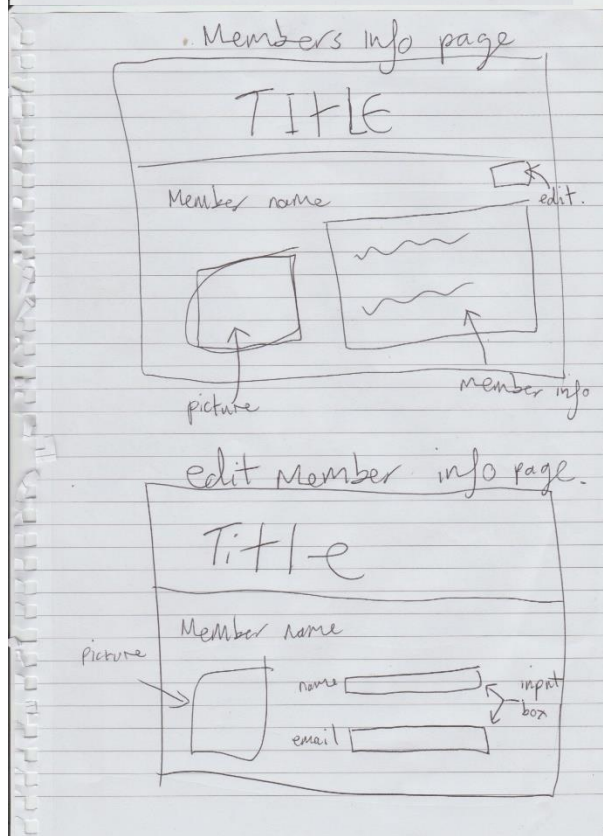 Members info page
TITLE
edit.
Member name
picture
Member info
edit Member info page.
Title
Member name
picture
name
input
box
email